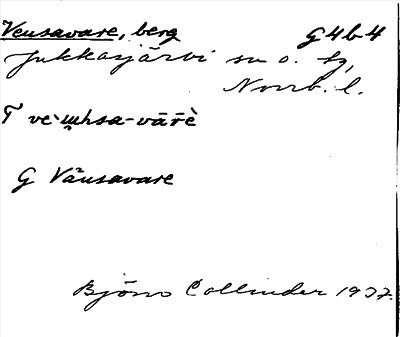 Veusavare, berg G4b4
Jukkasjärvi sn o. tg,
Norrb. l.
T ve`ɯhsa-vārè
G Väusavare
Björn Collinder 1937.